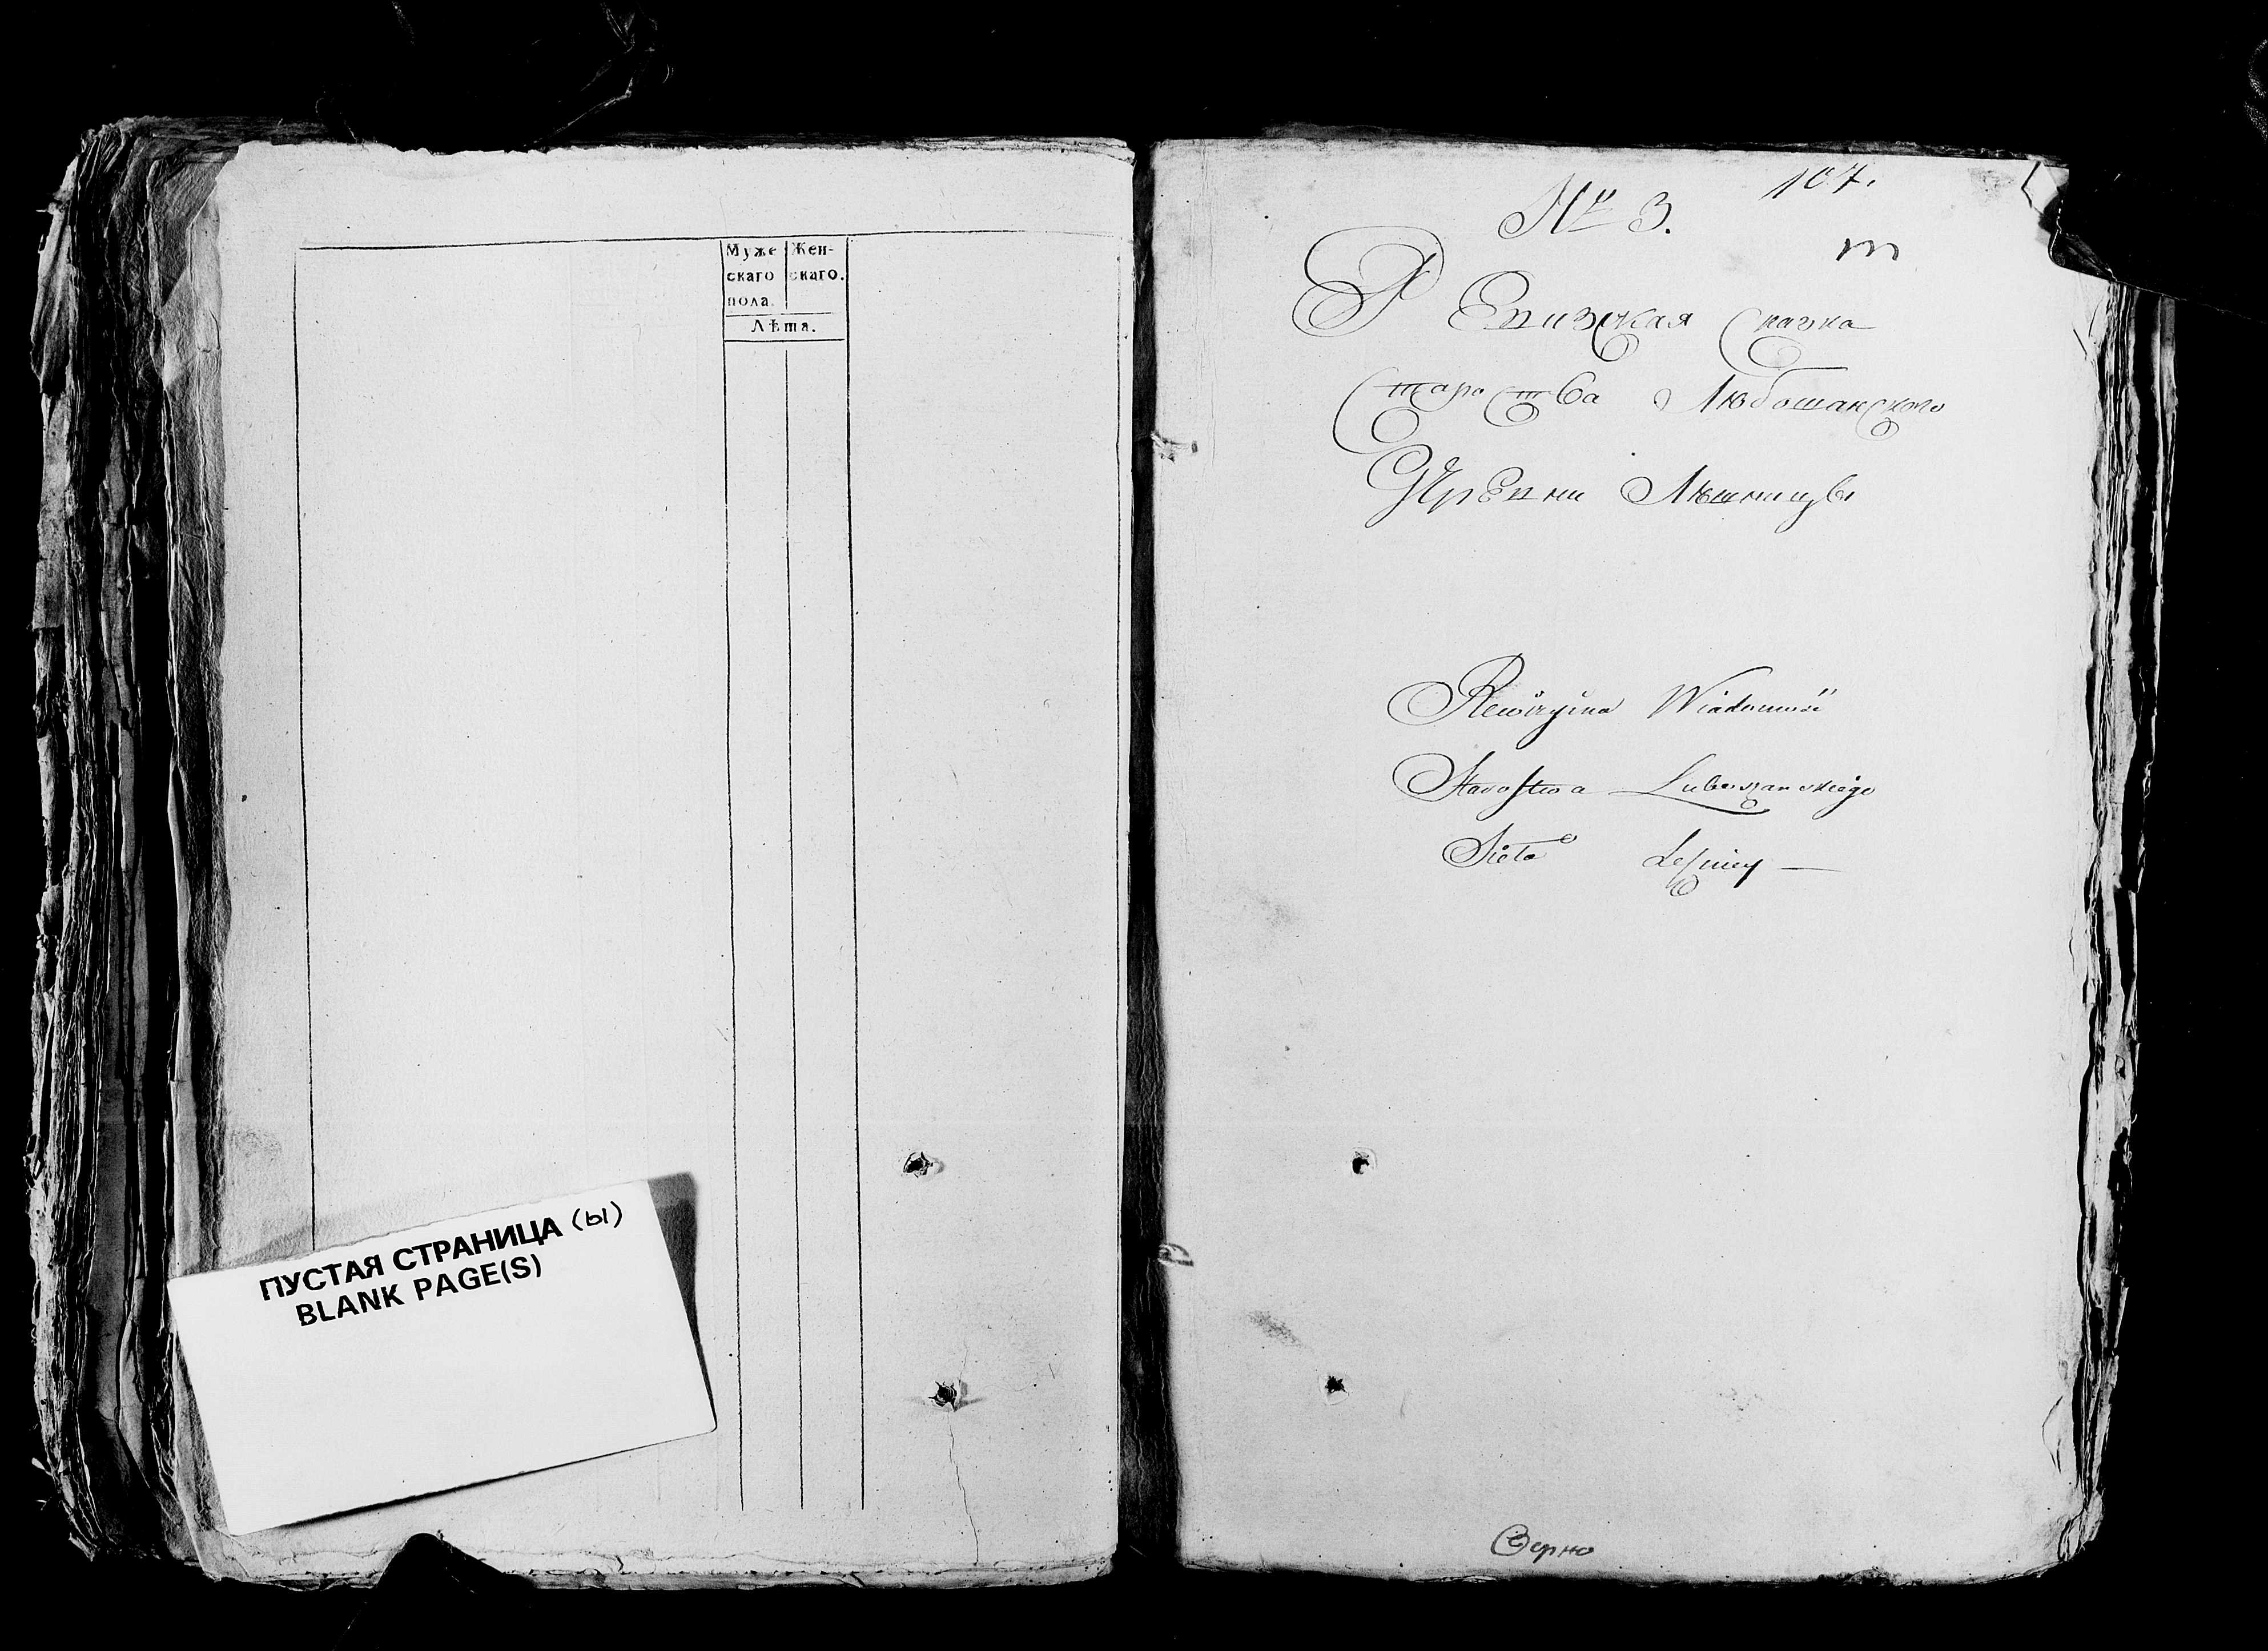 Муже
скаго
пола.
Жен-
скаго.
Лѣта.
ПУСТАЯ СТРАНИЦА (Ы)
BLANK PAGE(S)
107.
№ 3.
m
Ревизская Сказка
Староства Любошанского
Деревни Лѣшницы
Rewizyina Wiadomość
Starostwa Luboszanskiego
Sioła
Верно